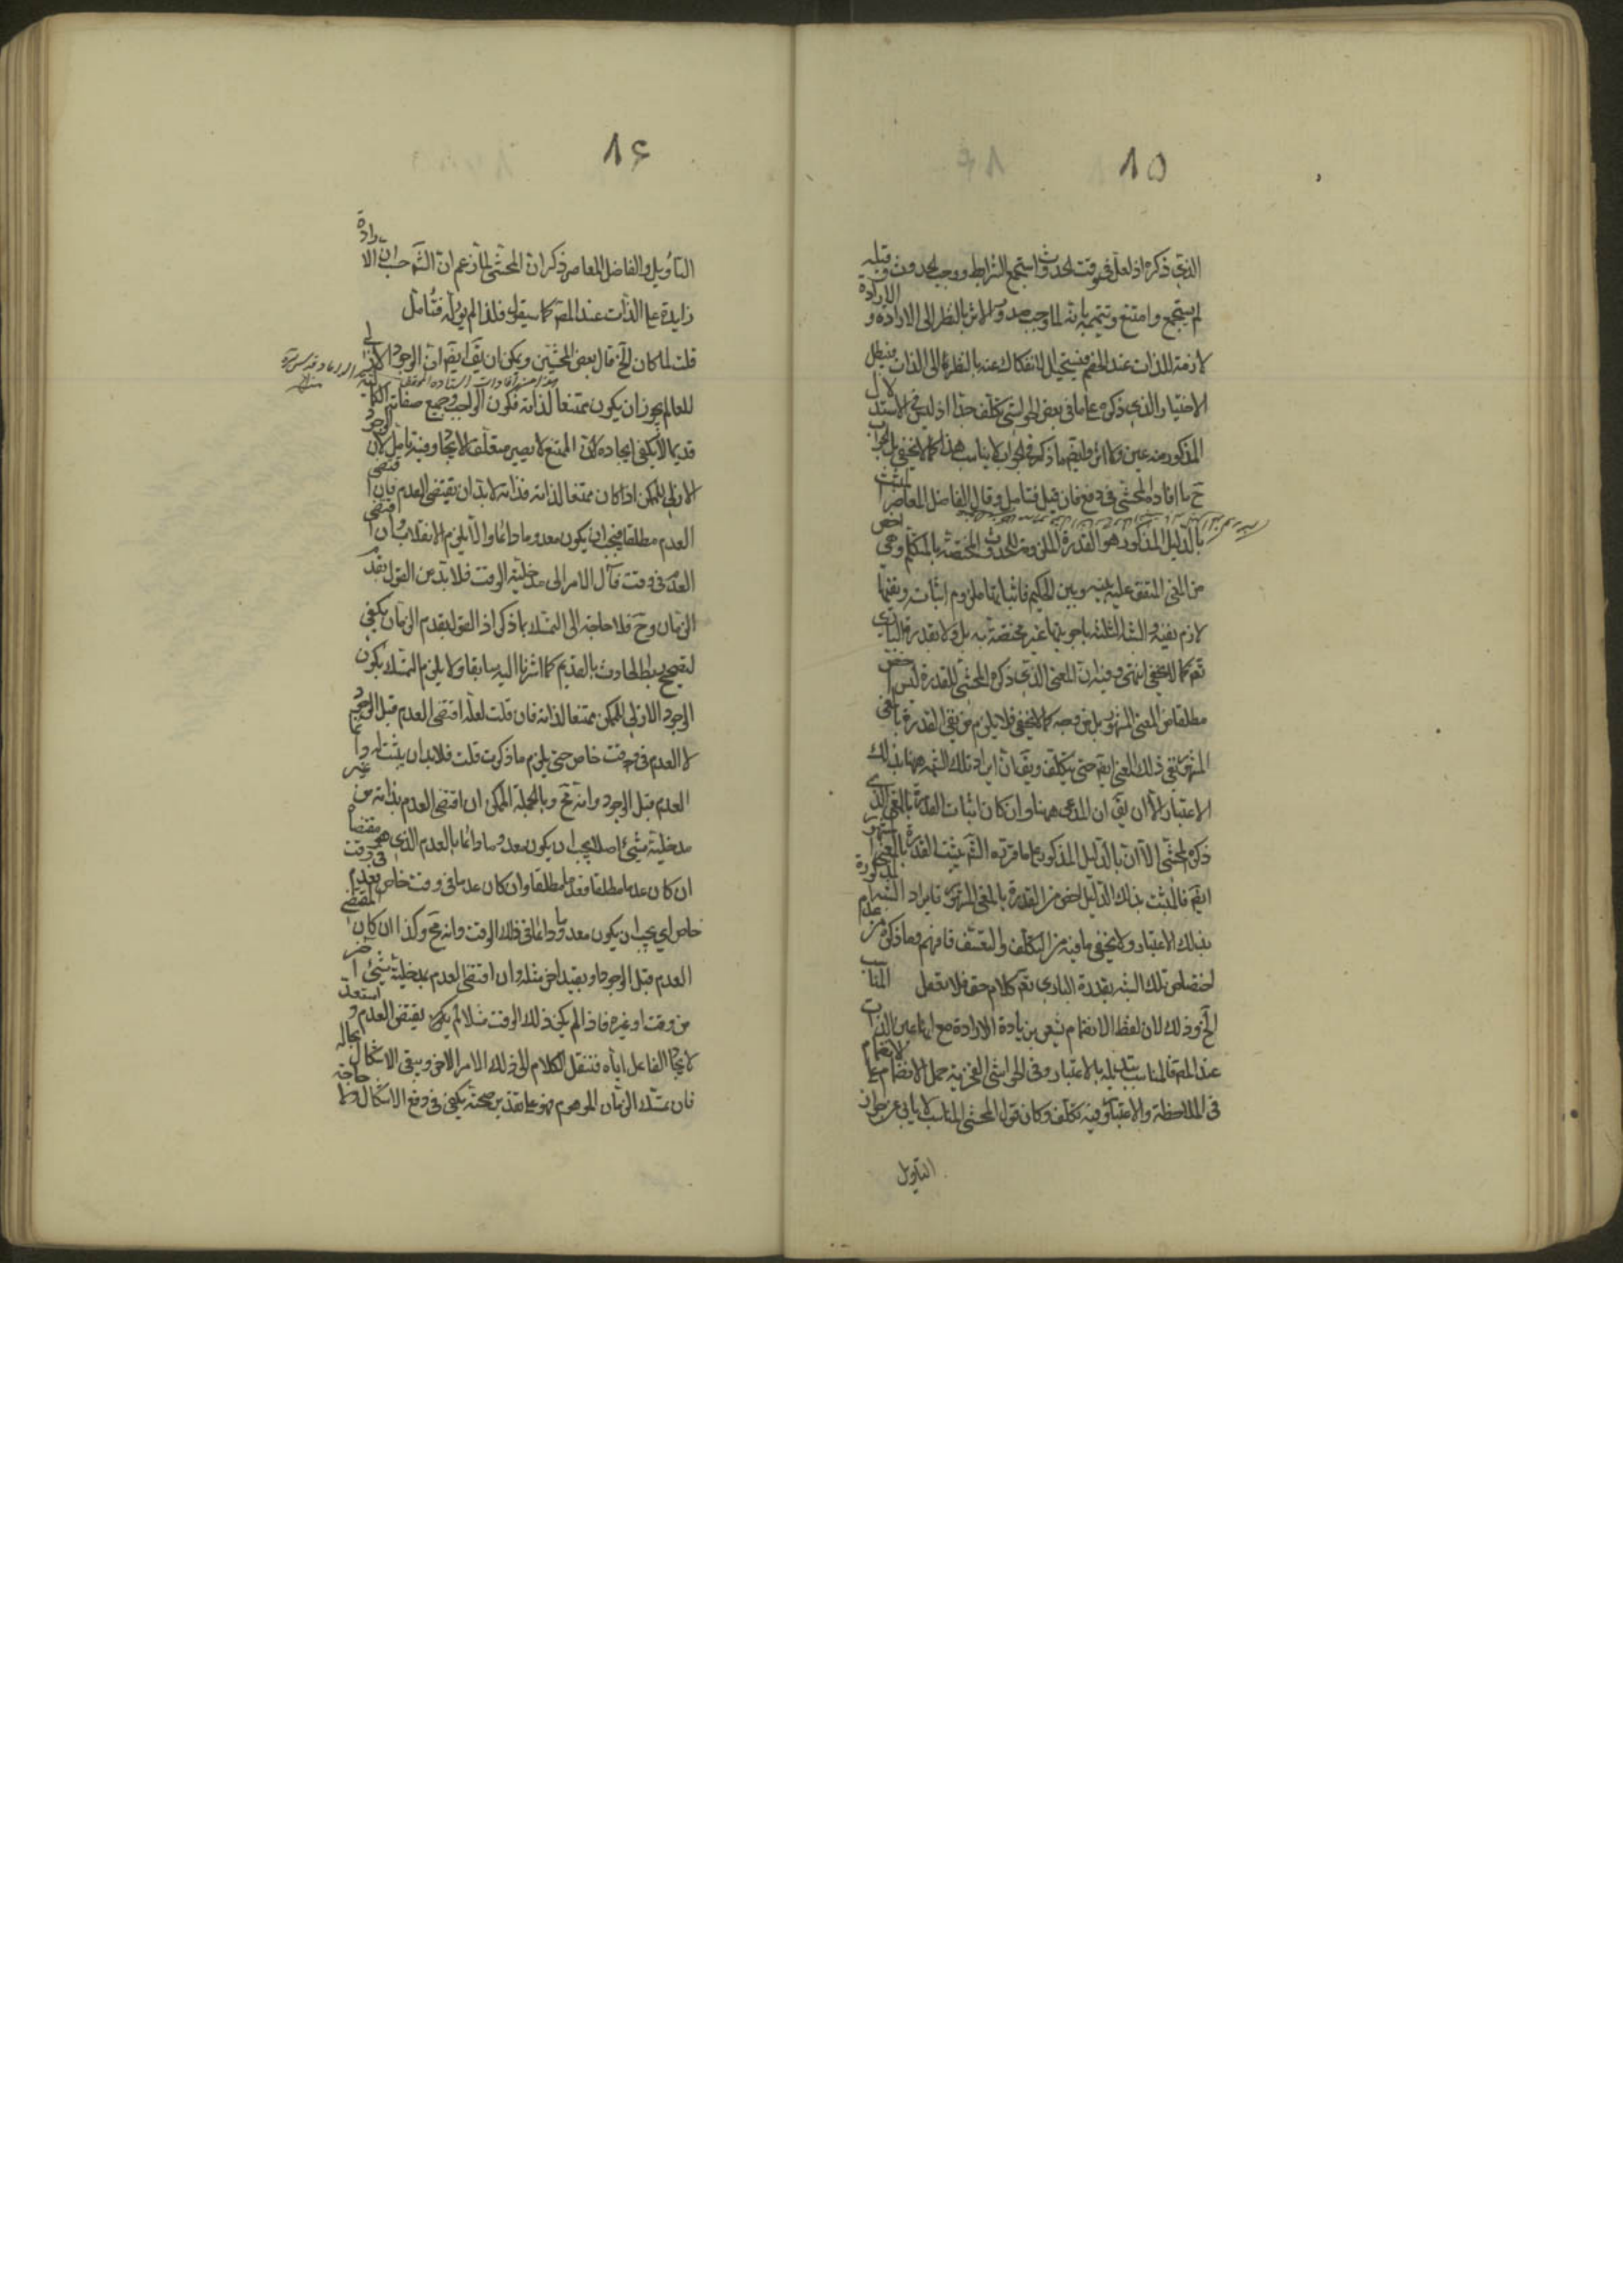 ١٥
الذي ذكره اذ لعل في وقت الحدوث استجمع الشرايط ووجب الحدوث وقبله
لم يستجمع وامتنع وتتميمه بانه لما وجب صدور الاثر بالنظر الى الارادة والارادة
لازمة للذات عند الخصم فيستحيل الانفكاك عنه بالنظر الى الذات فيبطل
الاختيار والذي ذكره في بعض الحواشي تكلف جدا اذ ليس في الاستدلال
المذكور منه عين ولا اثر وايضا ما ذكره في الجواب لا يناسب هذا كما لا يخفى بل الجواب
ح ما افاده المحشي في دفع فان قيل فتامل وقال الفاضل المعاصر
بالدليل المذكور هو القدرة الملزومة للحدوث المختصة بالمتكلم وهي اخص
من المعنى المتفق عليه بينه وبين الحكيم فاثباتها ملزوم اثباته ونفيها
لازم نفيه والشبه الثلثة باجوبتها غير مختصة به بل ولا بقدرة الباري
تعم كما لا يخفى انتهى وفيه ان المعنى الذي ذكره المحشي للقدرة ليس اخص
مطلقا من المعنى المشهور بل من وجه كما لا يخفى فلا يلزم من نفي القدرة بالمعنى
المشهور نفي ذلك المعنى ايضا حتى يتكلف ويقال ان ايراد تلك الشبه ههنا بذلك
الاعتبار الا ان يق ان المدعى ههنا وان كان اثبات القدرة بالمعنى الذي
ذكره المحشي الا ان بالدليل المذكور على ما قرره الش يثبت القدرة بالمعنى المشهور
ايضا فالمثبت بذلك الدليل اخص من القدرة بالمعنى المشهور فايراد الشبه المذكورة
بذلك الاعتبار ولا يخفى ما فيه من التكلف والتعسف فافهم وما ذكره من عدم
اختصاص تلك الشبه بقدرة الباري تعم كلام حق فلا تغفل المناسب
الخ وذلك لان لفظ الانضمام يشعر بزيادة الارادة مع انها عين الذات
عند المص فالمناسب تبديله بالاعتبار وفي الحواشي الفخرية حمل الانضمام على الانضمام
في الملاحظة والاعتبار وفيه تكلف وكان قول المحشي المناسب لا يابى عن جواز
التأويل
١٦
التأويل والفاضل المعاصر ذكر ان المحشي لما زعم ان الش حسب ان الارادة
زايدة على الذات عند المص كما سيقول فلذا لم يؤله فتأمل
قلت لما كان الخ قال بعض المحشين ويمكن ان يق ايضا ان الوجود الازلي
للعالم يجوز ان يكون ممتنعا لذاته فكون الواجب وجميع صفاته الكمالية
قديما لا يكفي ايجاده لان الممتنع لا يصير متعلق الايجاد وفيه تامل لان الوجود
الازلي للممكن اذا كان ممتنعا لذاته فذاته لابد ان يقتضي العدم فان اقتضى
العدم مطلقا فيجب ان يكون معدوما دائما والا يلزم الانقلاب وان اقتضى
العدم في وقت فآل الامر الى مدخلية الوقت فلا بد من القول بقدم
الزمان وح فلا حاجة الى التمسك بما ذكر اذ القول بقدم الزمان يكفي
لتصحيح ربط الحادث بالقديم كما اشرنا اليه سابقا ولا يلزم التمسك بكون
الوجود الازلي للممكن ممتنعا لذاته فان قلت لعله اقتضى العدم قبل الوجود
لا العدم في وقت خاص حتى يلزم ما ذكرت قلت فلابد ان يثبت له دائما
العدم قبل الوجود وانه مح وبالجملة الممكن ان اقتضى العدم بذاته من غير
مدخلية شيء اصلا يجب ان يكون معدوما دائما بالعدم الذي هو مقتضاه
ان كان عدما مطلقا فعدما مطلقا وان كان عدما في وقت خاص فعدم في وقت
خاص اي يجب ان يكون معدوما دائما في ذلك الوقت وانه مح وكذا ان كان المقتضى
العدم قبل الوجود او بقيد اخر مثله وان اقتضى العدم بمدخلية شيء اخر
من وقت او غيره فاذا لم يكن ذلك الوقت مثلا لم يكن يقتضي العدم واستعد
لايجاد الفاعل اياه فننقل الكلام الى ذلك الامر الاخر ويبقى الاشكال بحاله
فان تمسك الزمان الموهوم فهو على تقدير صحته يكفي في دفع الاشكال ولا حاجة